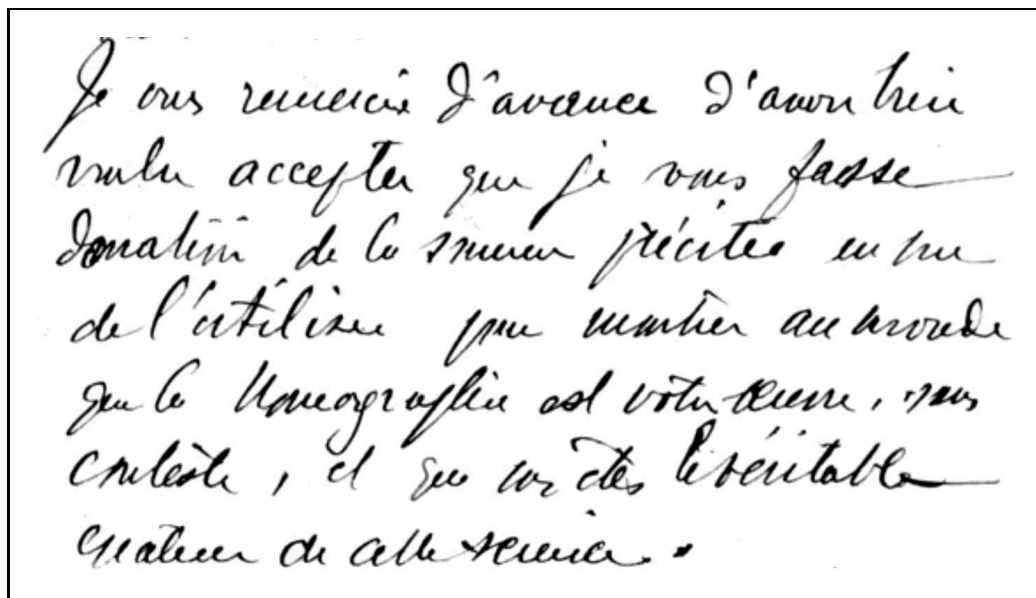 Je vous remercie d'avance d'avoir bien
voulu accepter que je vous fasse
donation de la somme précitée en vue
de l'utiliser pour montrer au monde
que la Nomographie est votre œuvre, sans
conteste, et que vous êtes le véritable
créateur de cette science.